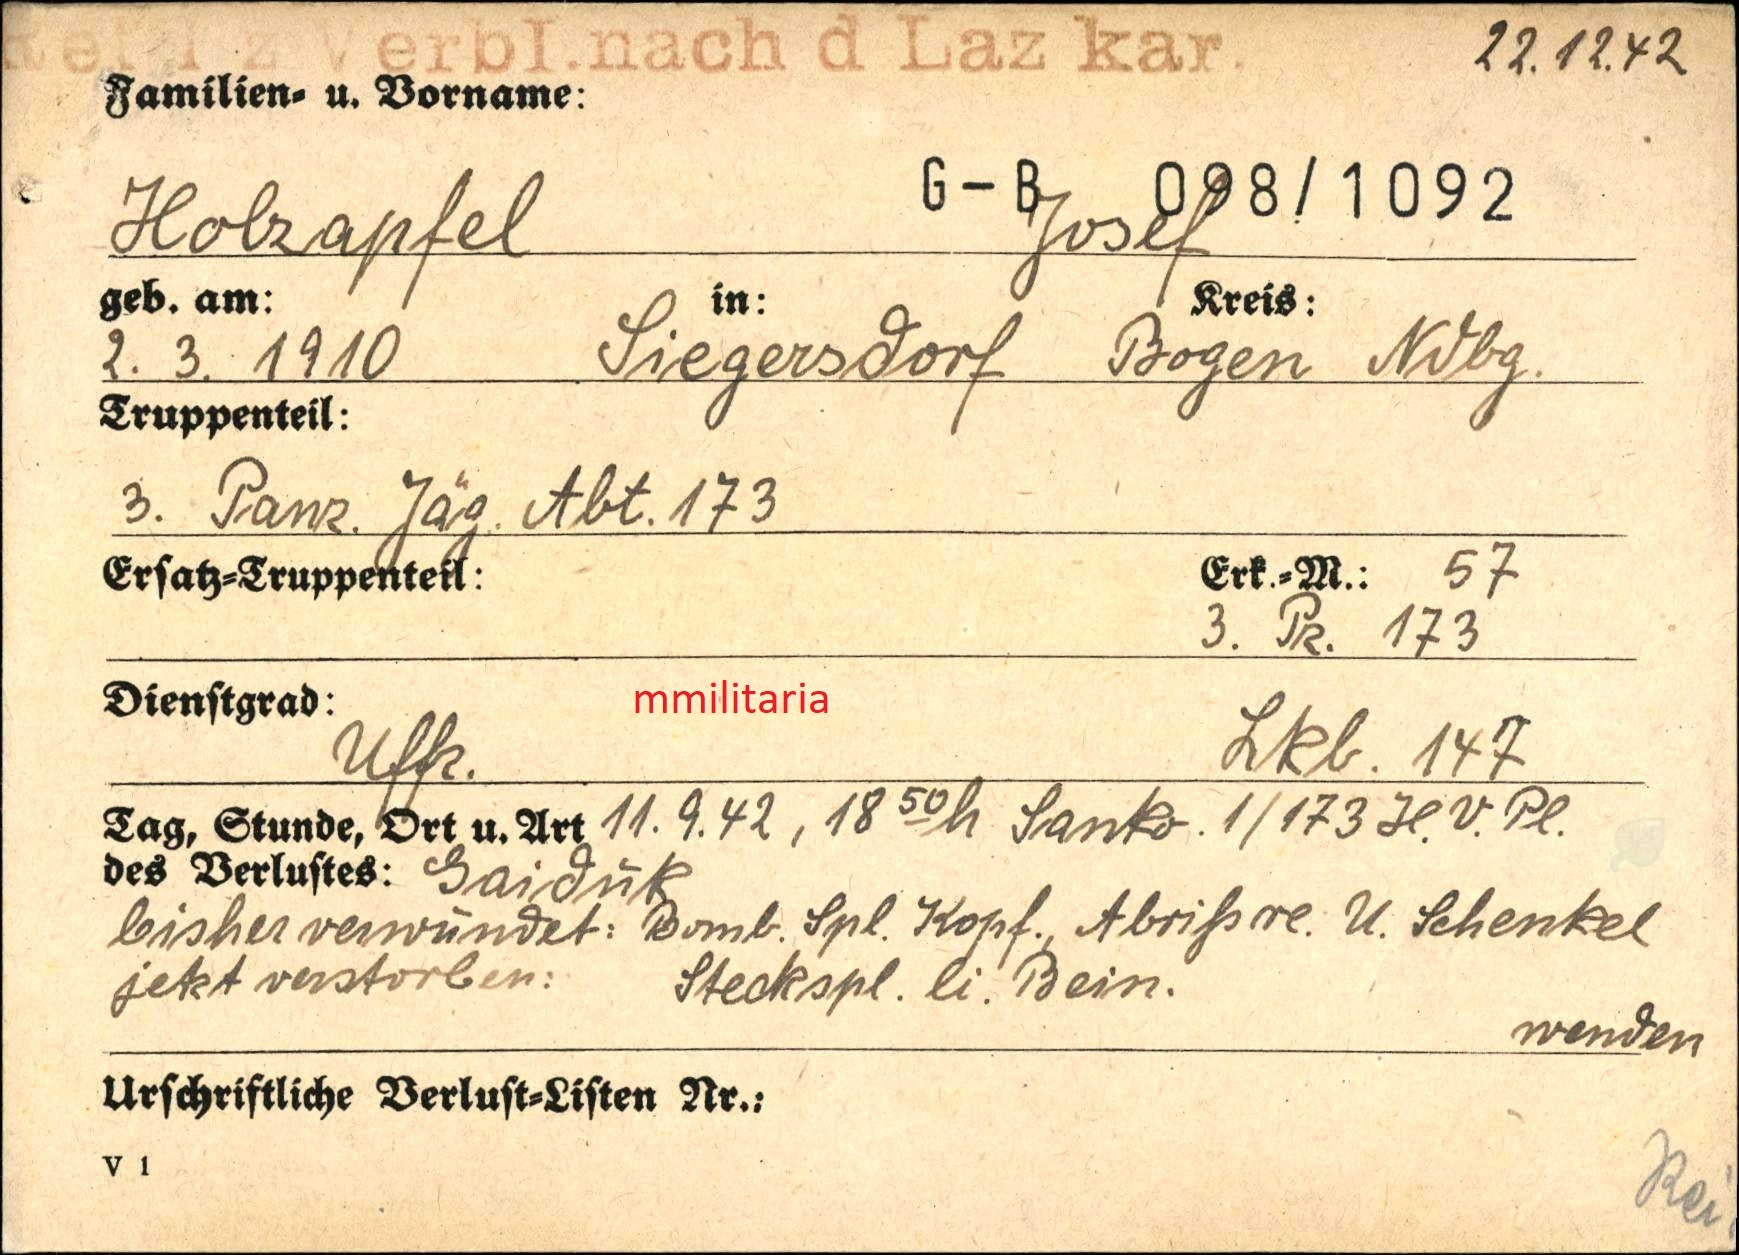 z Verbl. nach d Laz kar.
22.12.42
Familien- u. Vorname:
G-B 098/1092
Holzapfel Josef
geb. am: in: Kreis:
2. 3. 1910 Siegersdorf Bogen Ndbg.
Truppenteil:
3. Panz. Jäg. Abt. 173
Ersatz-Truppenteil: Erk.-M.: 57
3. Pz. 173
Dienstgrad: mmilitaria
Uffz. Lkb. 147
Tag, Stunde, Ort u. Art 11.9.42, 18 50 h Sanko. 1/173 H.V.Pl.
des Verlustes: Gaiduk
bisher verwundet: Bomb. Spl. Kopf., Abriß re. U. Schenkel
jetzt verstorben: Steckspl. li. Bein.
wenden
Urschriftliche Verlust-Listen Nr.:
V 1